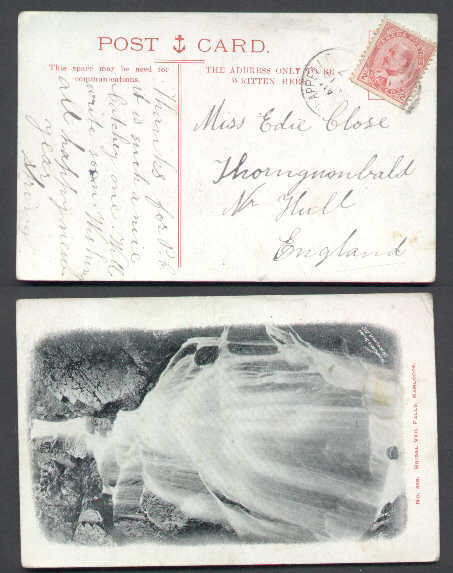 POST CARD.
This space may be used for
communications.
THE ADDRESS ONLY TO BE
WRITTEN HERE
Thanks for P.C.
it is such a nice
one. Will
write soon. Wishing
all happy new
year
Miss Edie Close
Thorngumbald
Nr Hull
England
No. 558. Bridal Veil Falls, Kamloops.